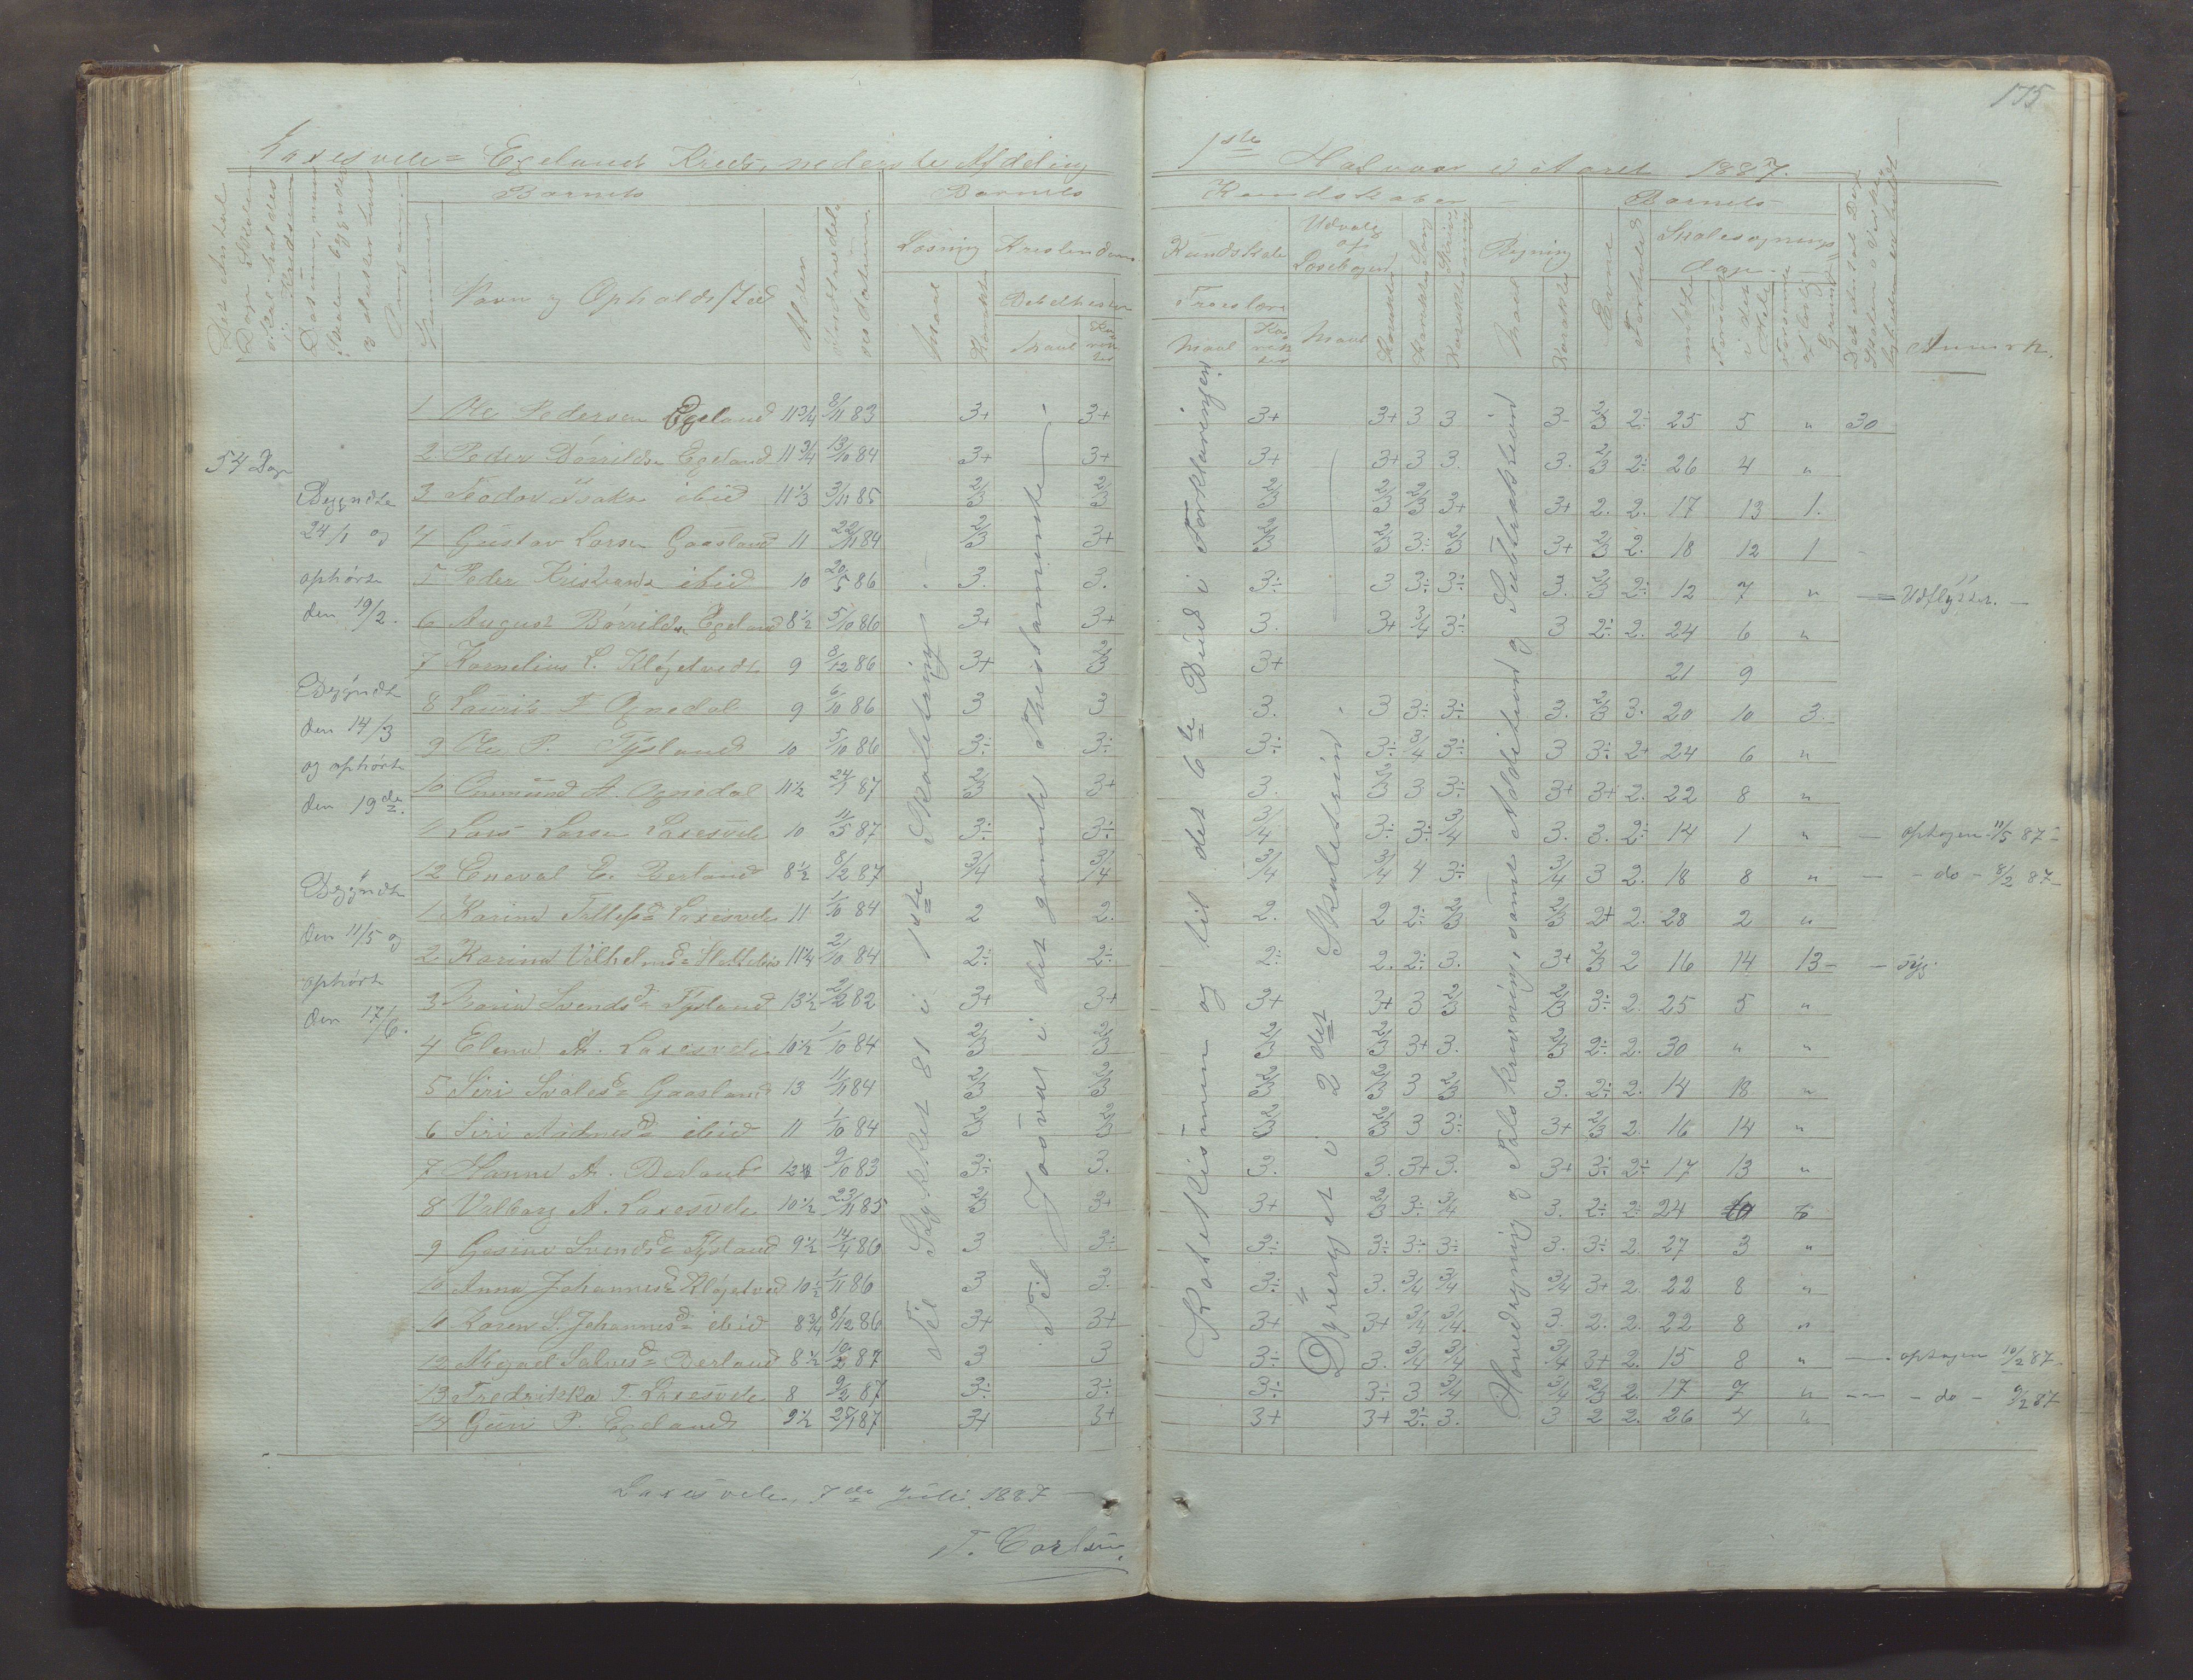 175
Laxesvele = Egelands Kreds, nederste Afdeling
1ste Halvaar i Aaret 1887.
Barnets
Barnets
Kundskaber
Barnets
Navn og Opholdssted
Alder
Læsning
Kristendom
Maal
Karakter
Bibelhistorie
Maal
Kundskab
Troeslære
Maal
Udvalg af Læsebogen
Maal
Karakter
Sang
Skrivning
Regning
Maal
Karakter
Evne
Forhold
Skolesøgnings Dage
mødte
Anmærk.
54 Dage
Begyndte 24/1 og ophørte den 19/2.
Begyndte den 14/3 og ophørte den 19de.
Begyndte den 11/5 og ophørte den 17/6.
1 Ole Pedersen Egeland 11 3/4 8/11 83 3+ 3+ 3+ 3+ 3 3 3- 2/3 2÷ 25 5 " 30
2 Peder Børrilds. Egeland 11 3/4 13/10 84 3+ 3+ 3+ 3+ 3 3. 3. 2/3 2÷ 26 4 "
3 Teodor Isaks. ibid 11 1/3 3/11 85 2/3 2/3 2/3 2/3 2/3 3+ 3+ 2. 2. 17 13 1.
4 Gustav Larsen Gaasland 11 22/11 84 2/3 3+ 2/3 2/3 3÷ 2/3 3+ 2/3 2. 18 12 1
5 Peder Kristians. ibid 10 20/5 86 3. 3. 3÷ 3 3÷ 3÷ 3. 2/3 2÷ 12 7 " Udflyttet.
6 August Børrilds. Egeland 8 1/2 5/10 86 3+ 3+ 3. 3+ 3/4 3÷ 3 2÷ 2. 24 6 "
7 Kornelius L. Kløgetvedt 9 8/12 86 3+ 2/3 3+ 21 9
8 Laurits T Ognedal 9 6/10 86 3 3 3. 3 3÷ 3÷ 3. 2/3 3. 20 10 3.
9 Ole P. Tysland 10 5/10 86 3÷ 3÷ 3÷ 3÷ 3/4 3÷ 3 3÷ 2+ 24 6 "
10 Aamund A. Ognedal 11 1/2 24/1 87 2/3 3+ 3. 2/3 3 3÷ 3+ 3+ 2. 22 8 "
11 Lars Larsen Laxesvele 10 11/5 87 3÷ 3÷ 3/4 3÷ 3÷ 3/4 3. 3. 2÷ 14 1 " optagen 11/5 87
12 Eneval E. Berland 8 1/2 8/2 87 3/4 3/4 3/4 3/4 4 3÷ 3/4 3 2. 18 8 " - do - 8/2 87
1 Karine Tallefsd. Laxesvele 11 1/10 84 2 2. 2. 2 2÷ 2/3 2/3 2+ 2. 28 2 "
2 Karine Vilhelmsd. 11 1/4 2/10 84 2÷ 2÷ 2÷ 2. 2÷ 3. 3+ 2/3 2 16 14 13 - syg.
3 Maria Svendsd. Tysland 13 1/2 2/2 82 3+ 3+ 3+ 3+ 3 2/3 2/3 3÷ 2. 25 5 "
4 Elena A. Laxesvele 10 1/2 1/10 84 2/3 2/3 2/3 2/3 3+ 3. 2/3 2÷ 2. 30 " "
5 Siri Svalesd. Gaasland 13 11/11 84 2/3 2/3 2/3 2/3 3 2/3 3. 2÷ 2. 14 18 "
6 Siri Aadnesd. ibid 11 1/10 84 2/3 2/3 2/3 2/3 3 3÷ 3+ 2/3 2. 16 14 "
7 Hanne A. Berland 12 9/10 83 3÷ 3. 3. 3. 3+ 3. 3+ 3÷ 2÷ 17 13 "
8 Valborg A. Laxesvele 10 1/2 23/11 85 2/3 3+ 3+ 2/3 3÷ 3/4 3. 2÷ 2÷ 24 6 6
9 Gesine Svendsd. Tysland 9 1/2 14/4 86 3 3÷ 3÷ 3÷ 3÷ 3÷ 3. 3÷ 2. 27 3 "
10 Anna Johannesd. Kløgetved 10 1/2 1/11 86 3 3. 3÷ 3. 3/4 3/4 3/4 3+ 2. 22 8 "
11 Karen S. Johannesd. ibid 8 3/4 8/12 86 3+ 3+ 3+ 3+ 3/4 3/4. 3. 2. 2. 22 8 "
12 Abgael Salvesd. Berland 8 1/2 10/2 87 3 3 3÷ 3. 3/4 3/4 3/4 3+ 2. 15 8 " optagen 10/2 87
13 Fredrikka T. Laxesvele 8 9/2 87 3÷ 3÷ 3÷ 3÷ 3 3/4 3/4 2/3 2. 17 7 " - do - 9/2 87
14 Guri P. Egeland 9 1/2 25/1 87 3+ 3+ 3+ 3+ 2÷ 3. 3 2 2. 26 4 "
Til Stykket 81 i 1ste Skoletrins
Til Josvas i det gamle Thestamente
Katekismen og til det 6te Bud i Forklaringen
Dyreriget i 2det Skoletrin
Hovedregning og Talskrivning, samt Addition og Subtraktion
Laxesvele, 7de Juli 1887
T. Carlsen.